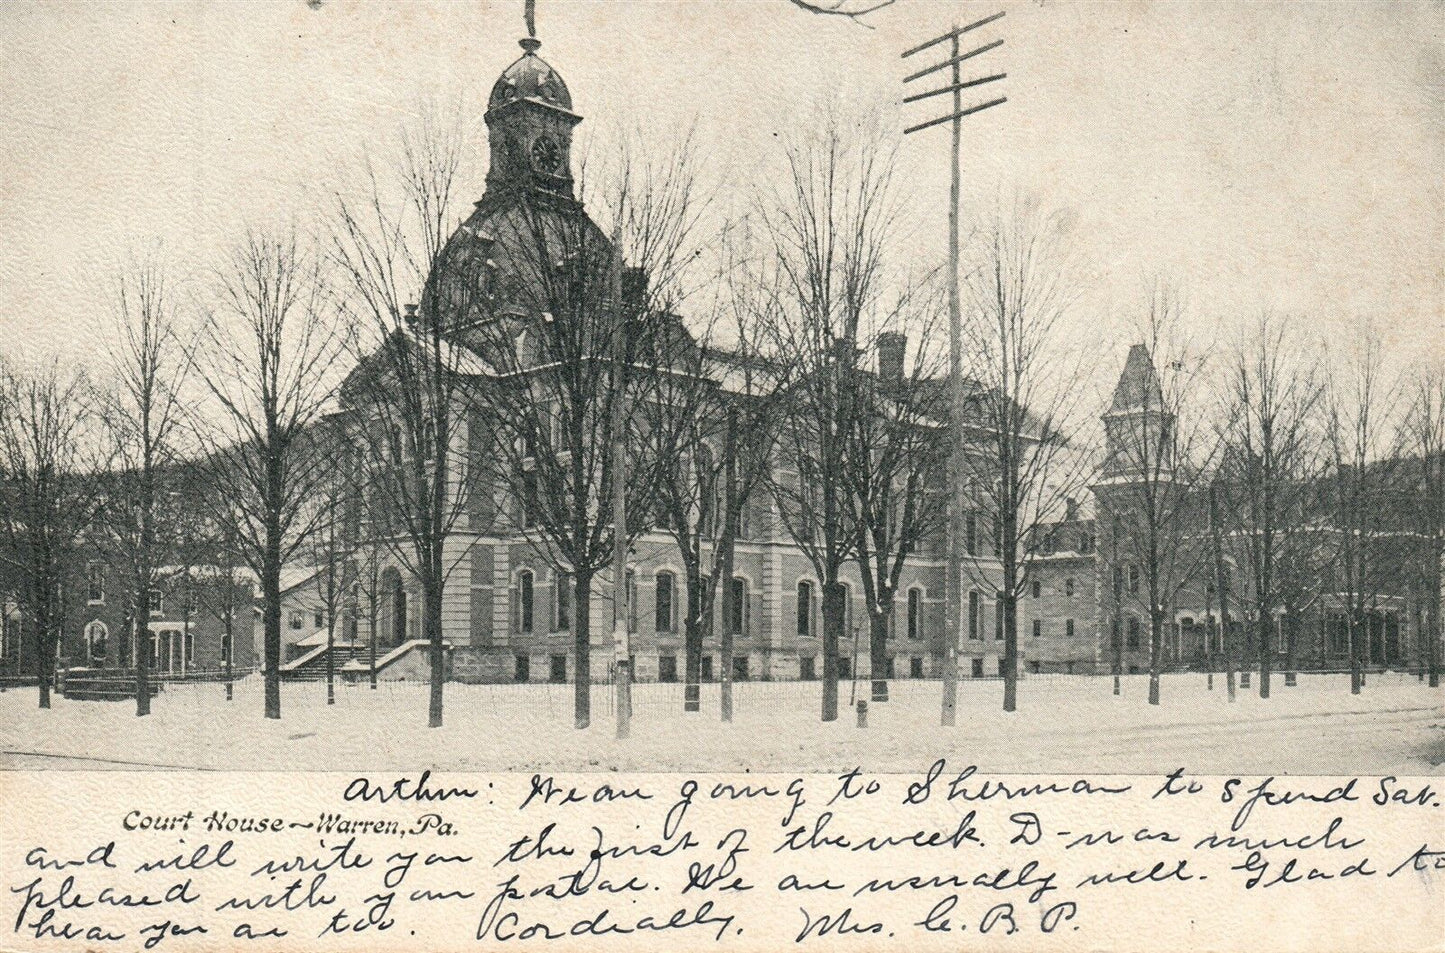 Arthur: We are going to Sherman to spend Sat.
Court House~Warren, Pa.
and will write you the first of the week. D- was much
pleased with your postal. We are usually well. Glad to
hear you are too. Cordially, Mrs. C. B. P.